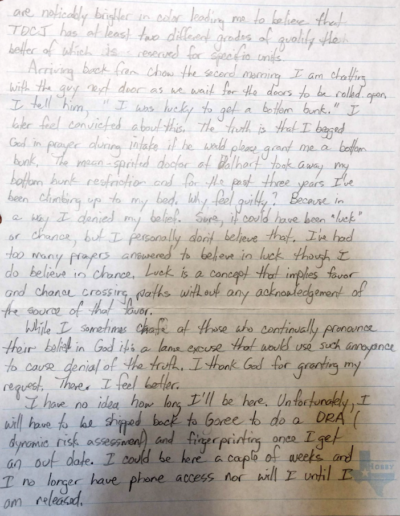 are noticably brighter in color leading me to believe that
TDCJ has at least two different grades of quality the
better of which is reserved for specific units.
Arriving back from chow the second morning I am chatting
with the guy next door as we wait for the doors to be rolled open.
I tell him, "I was lucky to get a bottom bunk." I
later feel convicted about this. The truth is that I begged
God in prayer during intake if he would please grant me a bottom
bunk. The mean-spirited doctor at Dalhart took away my
bottom bunk restriction and for the past three years I've
been climbing up to my bed. Why feel guilty? Because in
a way I denied my belief. Sure, it could have been "luck"
or chance, but I personally don't believe that. I've had
too many prayers answered to believe in luck though I
do believe in chance. Luck is a concept that implies favor
and chance crossing paths without any acknowledgement of
the source of that favor.
While I sometimes chaffe at those who continually pronounce
their belief in God it is a lame excuse that would use such annoyance
to cause denial of the truth. I thank God for granting my
request. There. I feel better.
I have no idea how long I'll be here. Unfortunately, I
will have to be shipped back to Goree to do a DRA (
dynamic risk assessment) and fingerprinting once I get
an out date. I could be here a couple of weeks and
I no longer have phone access nor will I until I
am released.